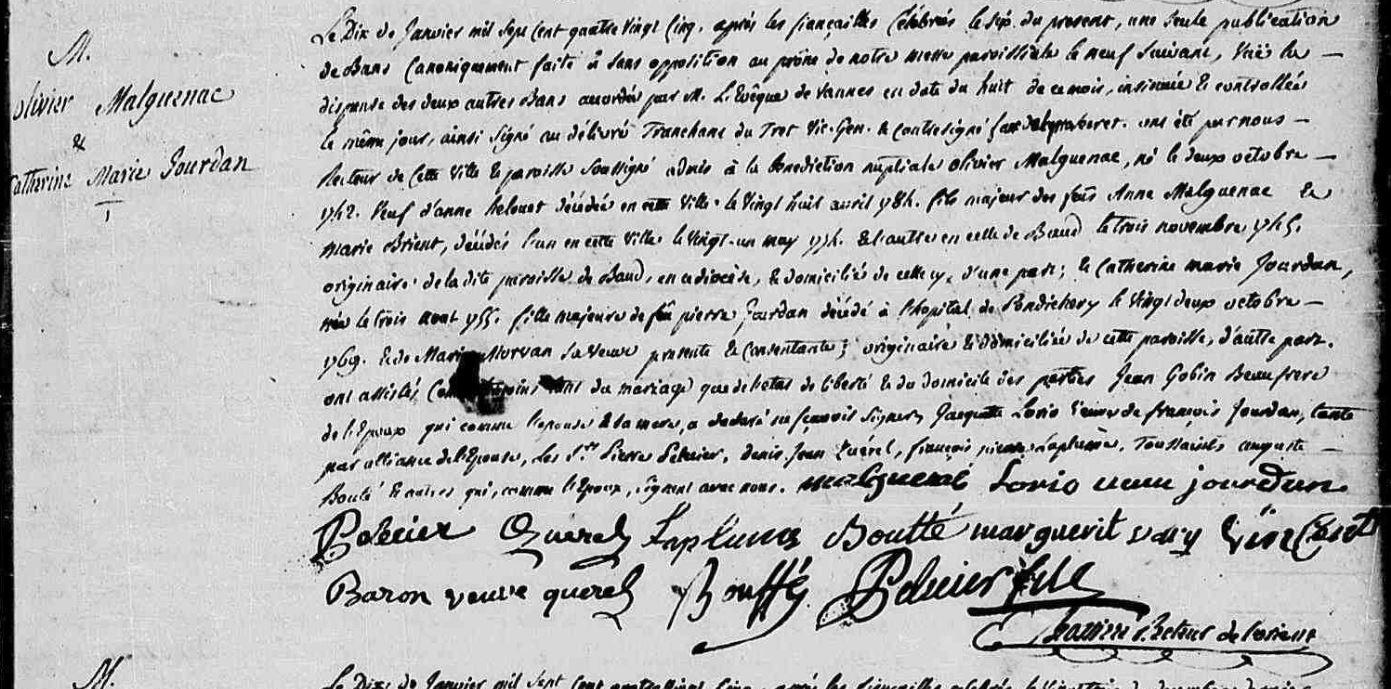 M.
olivier Malguenac
&
Catherine Marie Jourdan
1
Le Dix de Janvier mil Sept Cent quatre Vingt Cinq, après les fiançailles Célébrées le sept du present, une seule publication
de Bans Canoniquement faite & sans opposition au prône de notre messe paroissiale le neuf Suivant, Vûë la
dispense des deux autres Bans accordée par M. L'Evêque de Vannes en date du huit de ce mois, insinuée & controllée
le même jour, ainsi signé au délivré Tranchant du Tret Vic. Gen. & contresigné ont été par nous
Recteur de Cette Ville & paroisse Soussigné admis à la Benediction nuptiale olivier Malguenac, né le deux octobre
1742. Veuf d'anne helouet décédée en cette Ville le Vingt huit avril 1784. fils majeur des feûs Anne Malguenac &
marie Brient, décédés l'un en cette Ville le Vingt-un may 1774. & l'autre en celle de Baud le trois novembre 1745.
originaire de la dite paroisse de Baud, en ce diocèse, & domicilié de celle cy, d'une part; & Catherine marie Jourdan,
née le trois aout 1755. fille majeure de feû pierre Jourdan décédé à l'hopital de Pondichery le Vingt deux octobre
1769. & de Marie Morvan sa Veuve presente & Consentante; originaire & domiciliée de cette paroisse, d'autre part.
ont assisté Comme témoins tant du mariage que de l'etat de liberté & du domicile des parties Jean Gobin Beaufrere
de l'Epoux qui comme l'epouse & sa mere, a declaré ne sçavoir signer, Jacquette Lorio Veuve de françois Jourdan, tante
par alliance de l'Epouse, les Srs Pierre Pelicier, denis Jean Querel, françois pierre Laplume, Toussaint auguste
Boutté & autres qui, comme l'Epoux, signent avec nous. malguenac Lorio veuve jourdan
Pelicier Querel Laplume Boutté marguerit
Baron veuve querel Bouffé Pelicier fils
Recteur de Lorient
M.
Le Dix de Janvier mil Sept Cent quatre Vingt Cinq, après les fiançailles